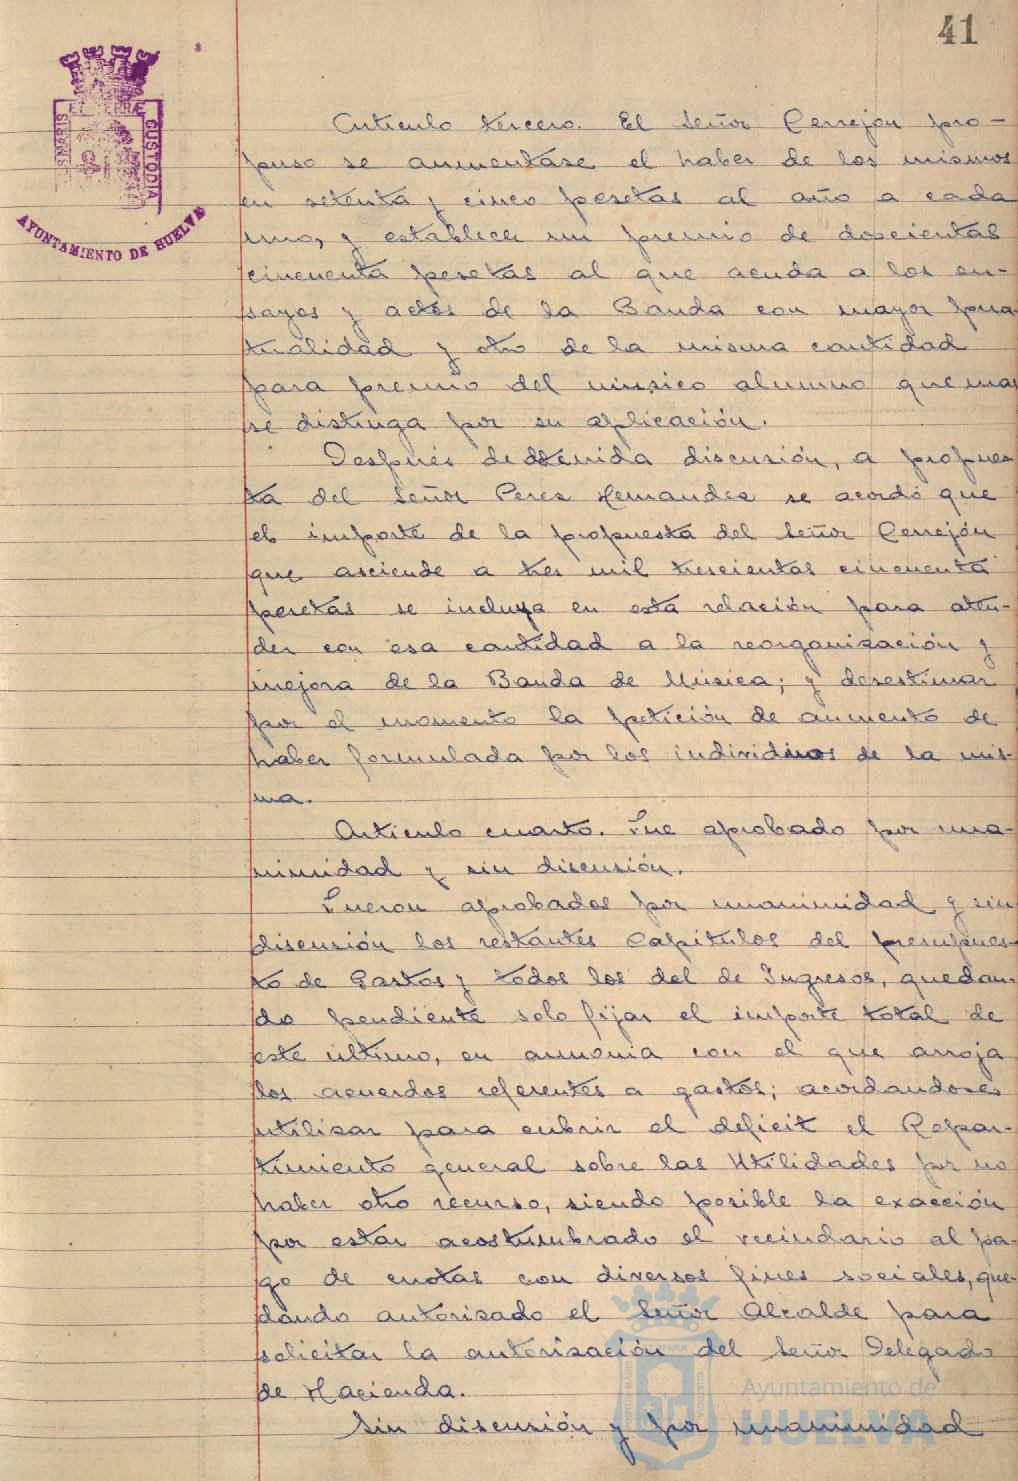 41
PORTUS MARIS ET TERRÆ CUSTODIA
AYUNTAMIENTO DE HUELVA
Articulo tercero. El Señor Cerrejón pro-
puso se aumentase el haber de los mismos
en setenta y cinco pesetas al año a cada
uno, y establecer un premio de doscientas
cincuenta pesetas al que acuda a los en-
sayos y actos de la Banda con mayor pun-
tualidad y otro de la misma cantidad
para premio del músico alumno que mas
se distinga por su aplicación.
Después de detenida discusión, a propues-
ta del Señor Perez Hernandez se acordó que
el importe de la propuesta del Señor Cerrejón
que asciende a tres mil trescientas cincuenta
pesetas se incluya en esta relación para aten-
der con esa cantidad a la reorganización y
mejora de la Banda de Música; y desestimar
por el momento la petición de aumento de
haber formulada por los individuos de la mis-
ma.
Articulo cuarto. Fue aprobado por una-
nimidad y sin discusión.
Fueron aprobados por unanimidad y sin
discusión los restantes Capitulos del presupues-
to de Gastos y todos los del de Ingresos, quedan-
do pendiente solo fijar el importe total de
este último, en armonia con el que arroja
los acuerdos referentes a gastos; acordandose
utilizar para cubrir el deficit el Repar-
timiento general sobre las Utilidades por no
haber otro recurso, siendo posible la exacción
por estar acostumbrado el vecindario al pa-
go de cuotas con diversos fines sociales, que-
dando autorizado el Señor Alcalde para
solicitar la autorización del Señor Delegado
de Hacienda.
Sin discusión y por unanimidad
Ayuntamiento de
HUELVA